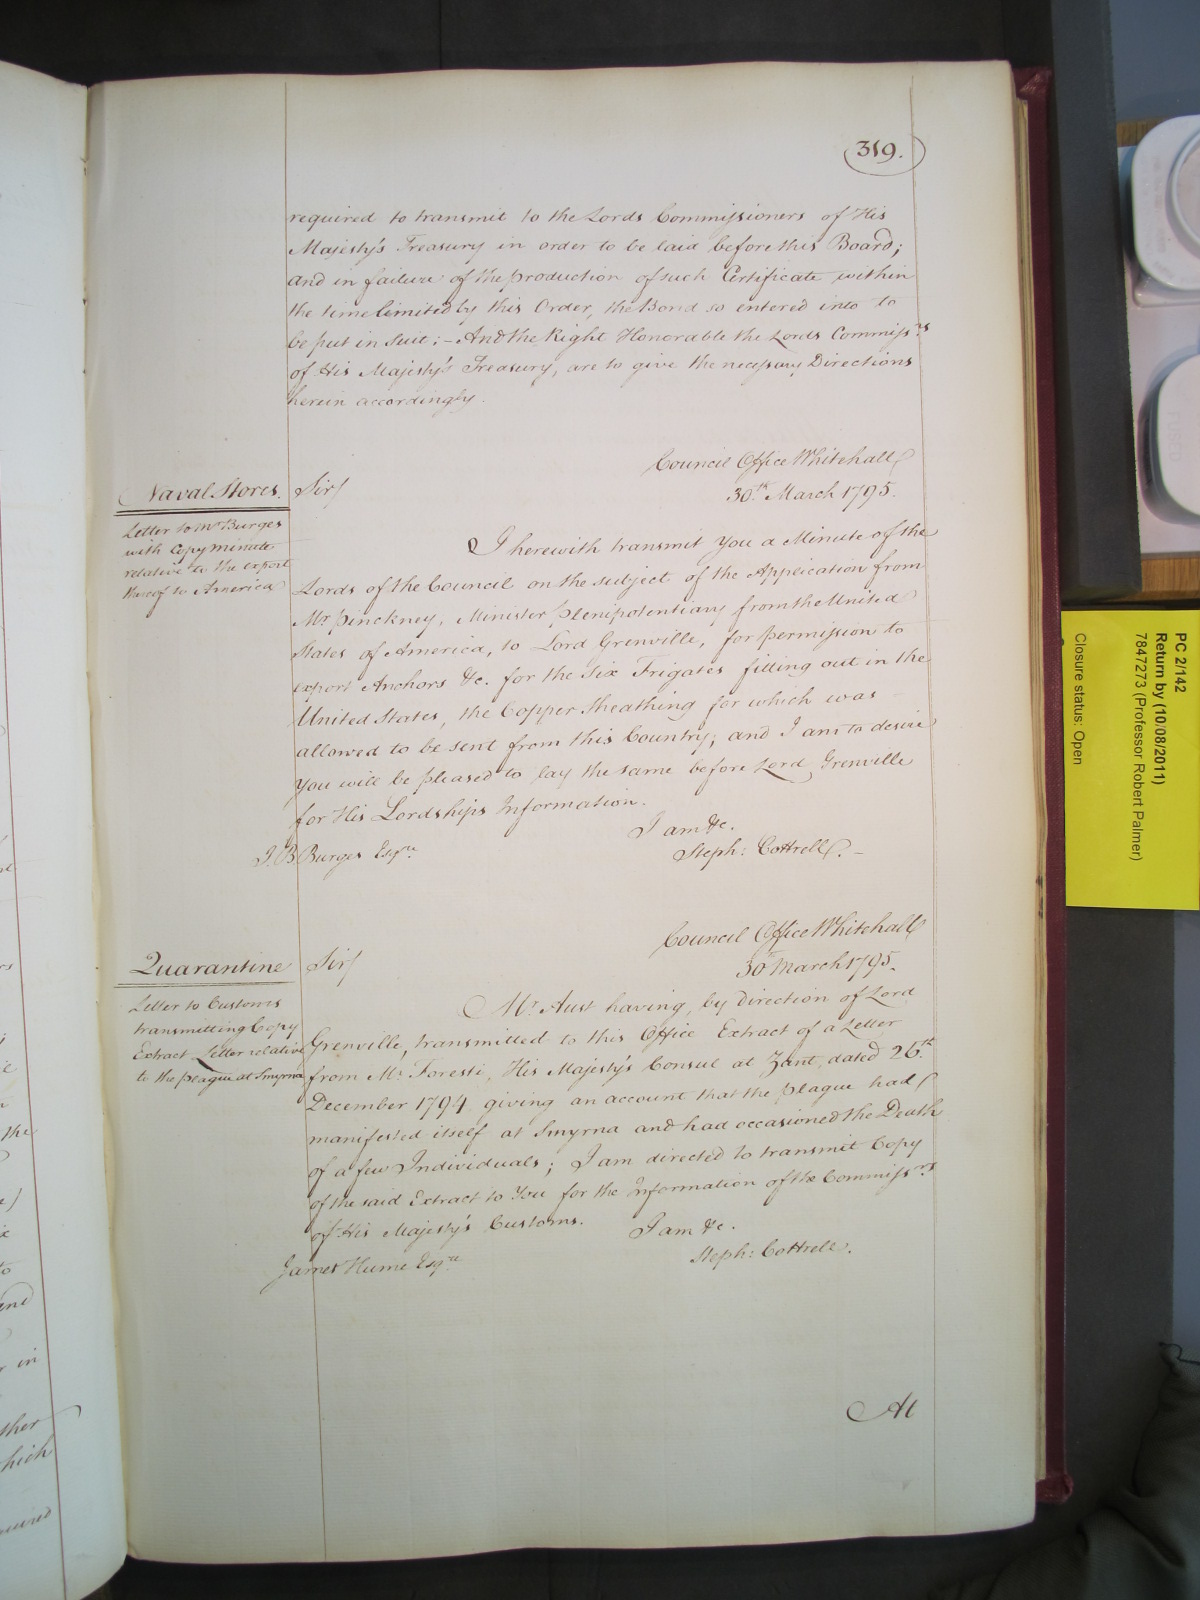 319.
required to transmit to the Lords Commissioners of His
Majesty's Treasury in order to be laid before this Board;
and in failure of the production of such Certificate within
the time limited by this Order, the Bond so entered into to
be put in Suit; – And the Right Honorable the Lords Commissrs
of His Majesty's Treasury, are to give the necessary Directions
herein accordingly.
Council Office Whitehall
30th March 1795.
Naval Stores.
Letter to Mr Burges
with Copy Minute
relative to the export
thereof to America
Sir/
I herewith transmit You a Minute of the
Lords of the Council on the subject of the Application from
Mr Pinckney, Minister Plenipotentiary from the United
States of America, to Lord Grenville, for permission to
export Anchors &c. for the Six Frigates fitting out in the
United States, the Copper Sheathing for which was
allowed to be sent from this Country; and I am to desire
You will be pleased to lay the same before Lord Grenville
for His Lordships Information.
I am &c.
Steph: Cottrell. –
J. B Burges Esqre
Council Office Whitehall
30 March 1795.
Quarantine
Letter to Customs
transmitting Copy
Extract Letter relative
to the plague at Smyrna
Sir/
Mr Aust having, by direction of Lord
Grenville, transmitted to this Office Extract of a Letter
from Mr Foresti, His Majesty's Consul at Zant, dated 26th
December 1794 giving an account that the Plague had
manifested itself at Smyrna and had occasioned the Death
of a few Individuals; I am directed to transmit Copy
of the said Extract to You for the Information of the Commissrs
of His Majesty's Customs.
I am &c.
Steph: Cottrell.
James Hume Esqre
At
PC 2/142
Return by (10/08/2011)
7847273 (Professor Robert Palmer)
Closure status: Open